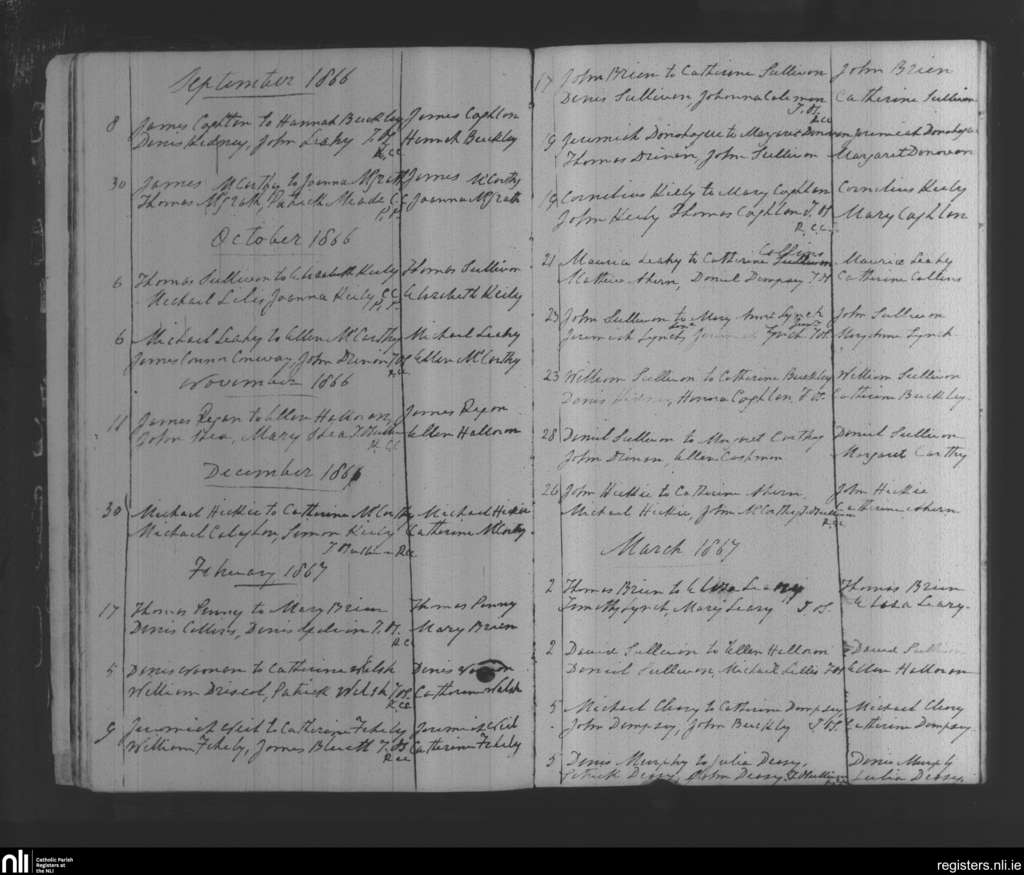 September 1866
8 James Coghlan to Hannah Buckley James Coghlan
Denis Sidney, John Leahy T. OS. Hannah Buckley
R.CC
30 James McCarthy to Joanna McGrath James McCarthy
Thomas McGrath, Patrick Meade C.C. Joanna McGrath
P.P.
October 1866
6 Thomas Sullivan to Elizabeth Kiely Thomas Sullivan
Michael Lilis Joanna Kiely CC Elizabeth Kiely
P.P.
6 Michael Leahy to Ellen McCarthy Michael Leahy
James Connor Conway, John Dinan T.OS. Ellen McCarthy
R.CC
November 1866
11 James Regan to Ellen Halloran James Regan
John Shea, Mary Shea Ellen Halloran
R. CC
December 1866
30 Michael Hickie to Catherine McCarthy Michael Hickie
Michael Simon Kiely Catherine McCarthy
R.CC
February 1867
17 Thomas Penny to Mary Brien Thomas Penny
Denis Collins, Denis T. OS. Mary Brien
R.C
5 Denis to Catherine Welsh Denis
William Driscol, Patrick Welsh T.OS. Catherine Welsh
R.CC
9 Jeremiah to Catherine Fehely Jeremiah
William Fehely, James T.OS Catherine Fehely
R.CC
17 John Brien to Catherine Sullivan John Brien
Denis Sullivan Johanna Coleman Catherine Sullivan
T. OS.
R.CC
9 Jeremiah Donohogue to Margaret Donovan Jeremiah Donohogue
Thomas Dinan, John Sullivan Margaret Donovan
19 Cornelius Kiely to Mary Coghlan Cornelius Kiely
John Kiely Thomas Coghlan T. OS. Mary Coghlan
R. C.C.
Collins
21 Maurice Leahy to Catherine Sullivan Maurice Leahy
Mathew Ahern, Daniel Dempsey T.OS Catherine Collins
23 John Sullivan to Mary Anne Lynch John Sullivan
Jeremiah Lynch, Lynch T.OS. Mary Anne Lynch
23 William Sullivan to Catherine Buckley William Sullivan
Denis Sidney, Honora Coghlan. T. OS. Catherine Buckley.
28 Daniel Sullivan to Margret Carthy Daniel Sullivan
John Dinan, Ellen Cashman Margaret Carthy
26 John Hickie to Catherine Ahern John Hickie
Michael Hickie, John McCarthy T.OSullivan Catherine Ahern.
R.CC
March 1867
2 Thomas Brien to Eliza Leary Thomas Brien
Timothy Lynch, Mary Leary T. OS. Eliza Leary.
2 David Sullivan to Ellen Halloran David Sullivan
Daniel Sullivan, Michael Lillis T.OS Ellen Halloran
5 Michael Cleary to Catherine Dempsey Michael Cleary
John Dempsey, John Buckley T.OS. Catherine Dempsey.
5 Denis Murphy to Julia Deasy, Denis Murphy
Patrick Deasy, John Deasy T.OSullivan Julia Deasy.
nli
Catholic Parish
Registers at
the NLI
registers.nli.ie